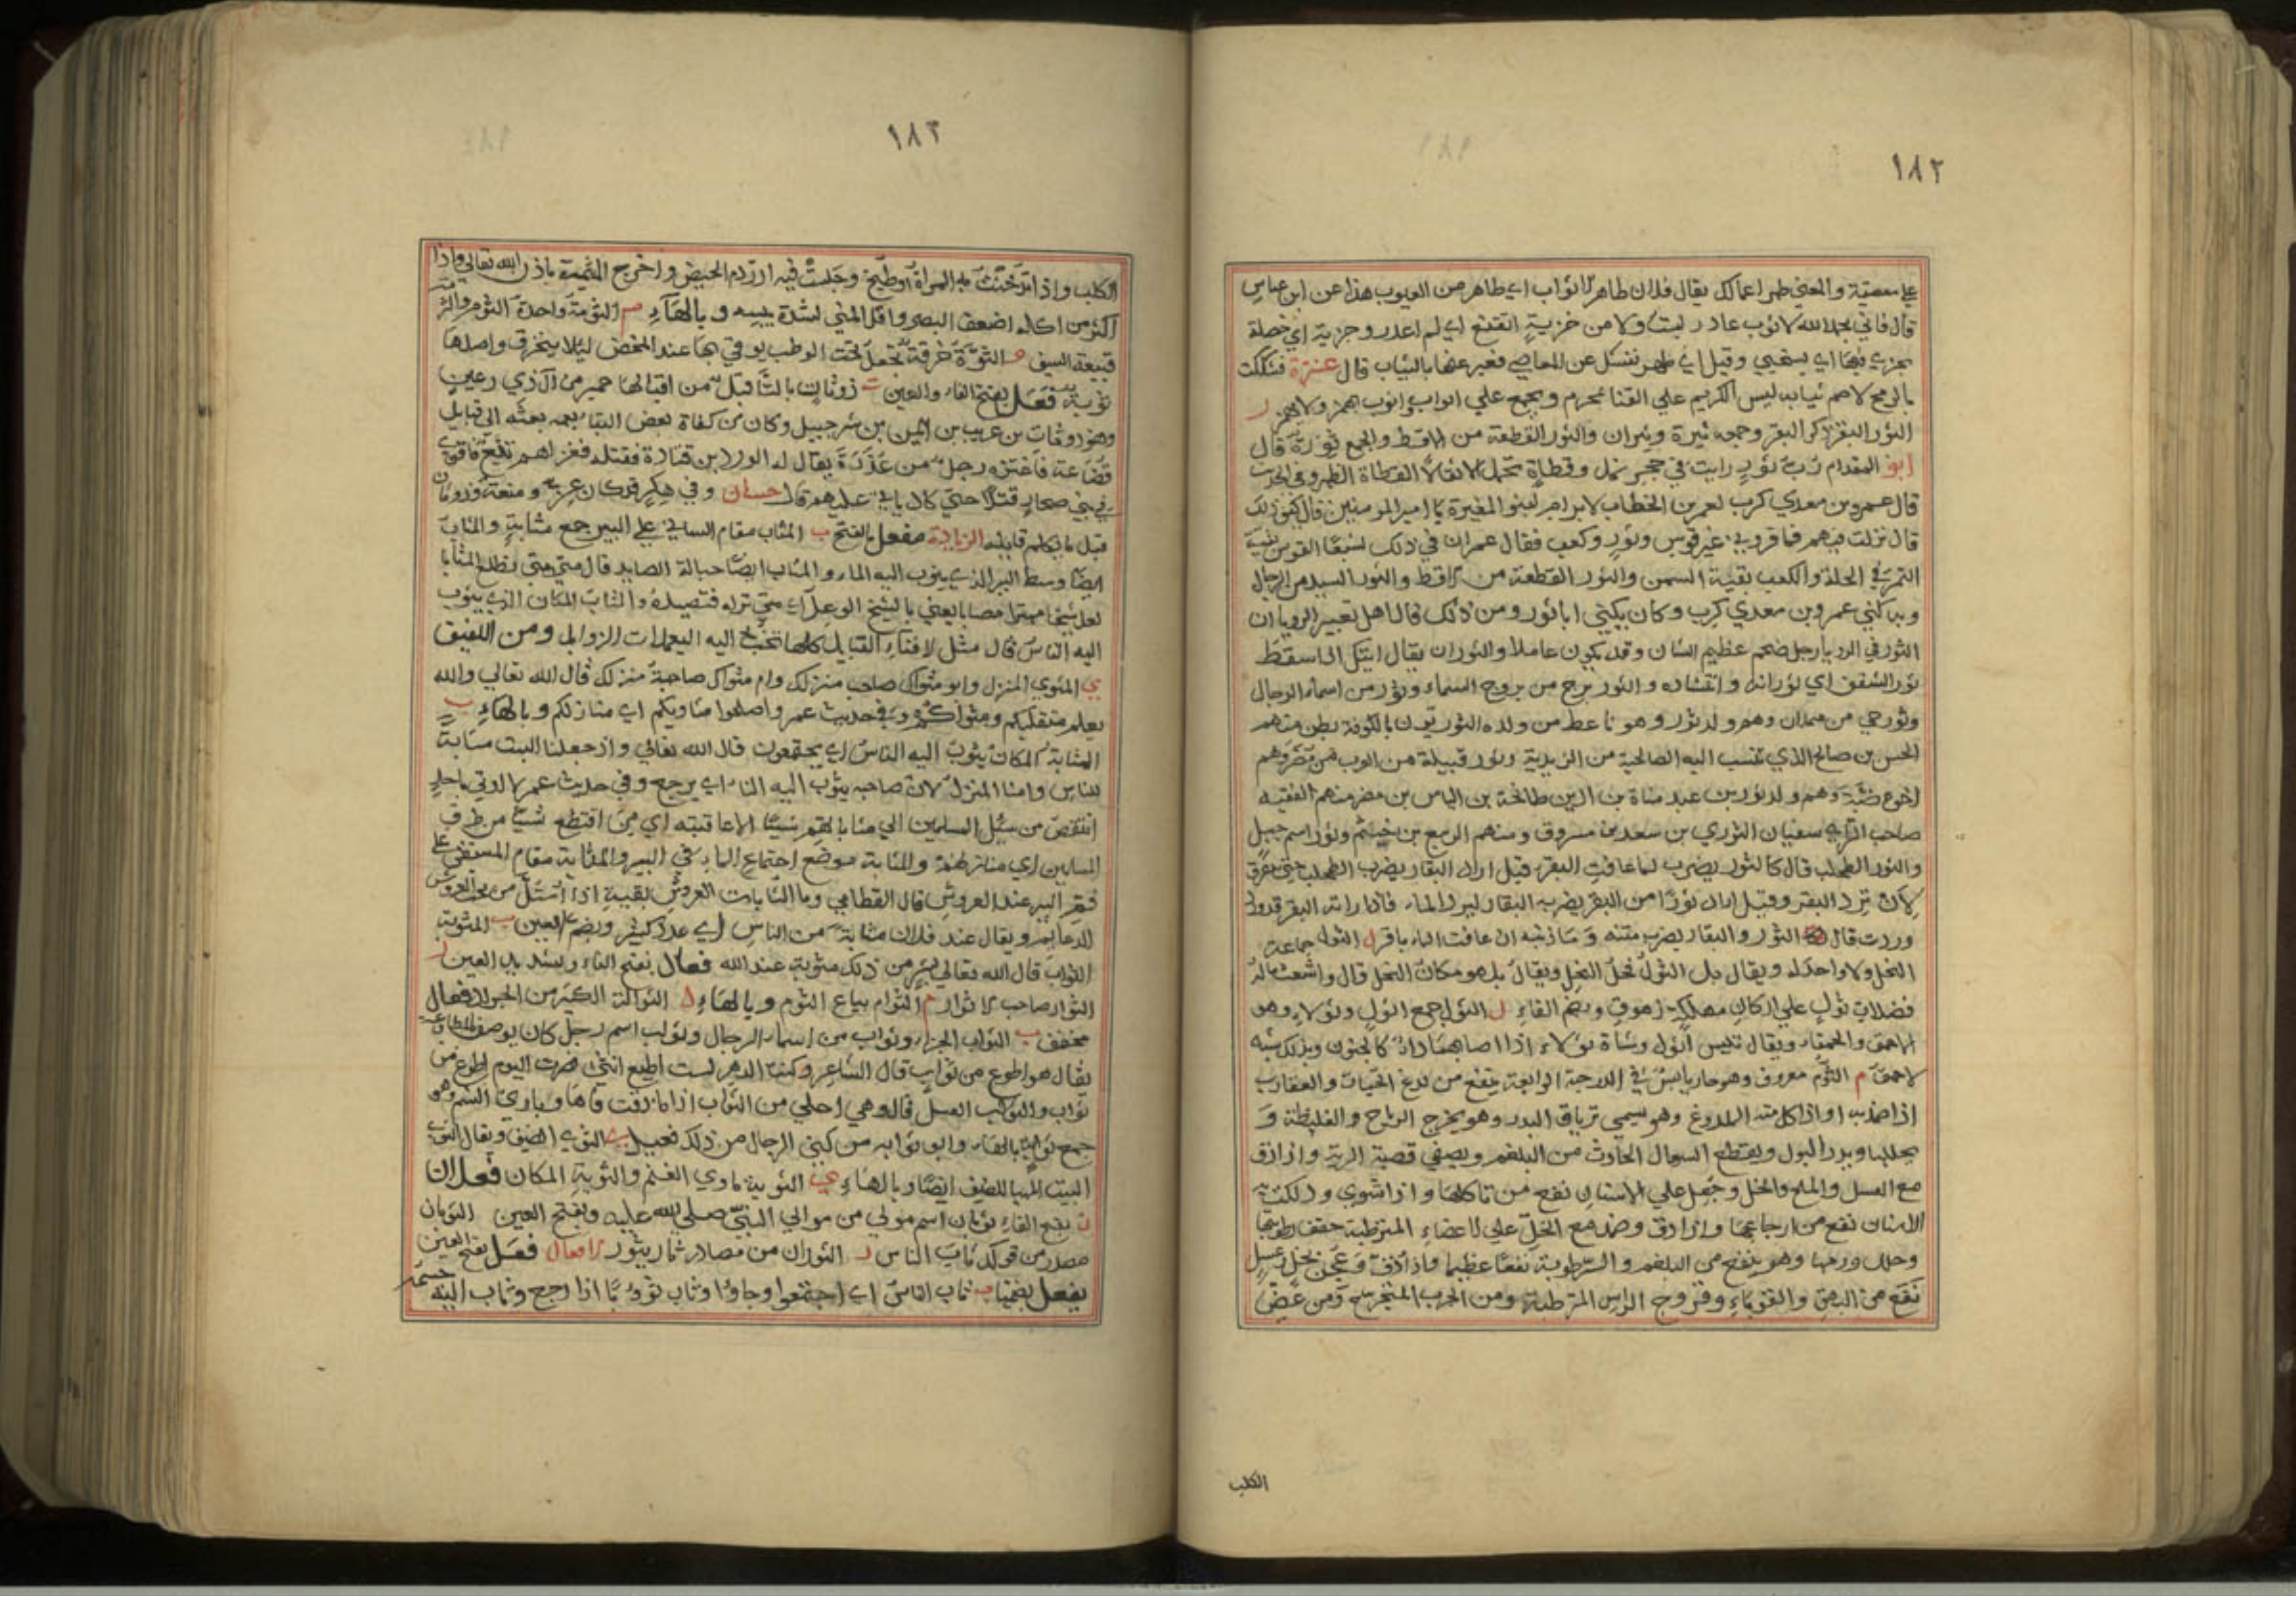 ١٨٢
على معصية والمعنى طهر اعمالك يقال فلان طاهر الاثواب اي طاهر من العيوب هذا عن ابن عباس
قال فاني بحمد الله لا ثوب غادر لبست ولا من خزية اتقنع اي لم اغدر وخزية اي خصلة
يخزي بها اي يستحيي وقيل اي طهر نفسك عن المعاصي فعبر عنها بالثياب قال عنترة فشككت
بالرمح الاصم ثيابه ليس الكريم على القنا بمحرم ويجمع على اثواب واثوب بهمز ولا يهمز ر
الثور البقر ذكر البقر وجمعه ثيرة وثيران والثور القطعة من الاقط والجمع ثورة قال
ابو المقدام رب ثور رايت في جحر نمل وقطاة تحمل الاثقالا القطاة الظهر وفي الحديث
قال عمرو بن معدي كرب لعمر بن الخطاب لابرام لبنو المغيرة يا امير المومنين قال كيف ذلك
قال نزلت فيهم فما قروني غير قوس وثور وكعب فقال عمر ان في ذلك لشبعا القوس بقية
التمر في الجلة والكعب بقية السمن والثور القطعة من الاقط والثور السيد من الرجال
وبه كني عمرو بن معدي كرب وكان يكنى ابا ثور ومن ذلك قال اهل تعبير الرويا ان
الثور في الرويا رجل ضخم عظيم الشان وقد يكون عاملا والثوران يقال اليكل اذا سقط
ثور الشفق اي ثورانه وانتشاره والثور برج من بروج السماء وثور من اسماء الرجال
وثور حي من همدان وهم ولد ثور وهو ناعط من ولده الثوريون بالكوفة بطن منهم
الحسن بن صالح الذي تنسب اليه الصالحية من الزيدية وثور قبيلة من العرب من مضر وهم
اخوة ضبة وهم ولد ثور بن عبد مناة بن اد بن طابخة بن الياس بن مضر منهم الفقيه
صاحب الراي سفيان الثوري بن سعد بن مسروق ومنهم الربيع بن خيثم وثور اسم جبل
والثور الطحلب قال كالثور يضرب لما عافت البقر قيل اراد البقار يضرب الطحلب حتى يتفرق
لان ترد البقر وقيل اراد ثورا من البقر يضربه البقار ليرد الماء فاذا راته البقر قد ورد
وردت قال الثور والبقار يضرب متنه وما ذنبه ان عافت الماء باقر ل الثول جماعة
النحل ولا واحد له ويقال بل الثول فحل النحل ويقال بل هو مكان النحل قال واشعث ماله
فضلات ثول على اركان مهلكة زهوق وبضم الفاء ل الثول جمع اثول وثولاء وهو
الاحمق والحمقاء ويقال تيس اثول وشاة ثولاء اذا اصابها داء كالجنون وبذلك شبه
الاحمق م الثوم معروف وهو حار يابس في الدرجة الرابعة ينفع من لدغ الحيات والعقارب
اذا ضمد به او اذا اكل منه الملدوغ وهو يسمى ترياق البدو وهو يخرج الرياح والغليظة و
يحللها ويدر البول ويقطع السعال الحادث من البلغم ويصفي قصبة الرية واذا دق
مع العسل والملح والخل وجعل على الاسنان نفع من تاكلها واذا شوي ودلكت به
الاسنان نفع من اوجاعها واذا دق وضمد مع الخل على الاعضاء المترطبة جفف رطوبتها
وحلل ورمها وهو ينفع من البلغم والرطوبة نفعا عظيما واذا دق وعجن بخل وعسل
نفع من البهق والقوباء وقروح الراس المترطبة ومن الجرب المتقرح ومن عض
الكلب
١٨٣
الكلب واذا تدخنت به المراة او طبخ وجلست فيه ادر دم الحيض واخرج المشيمة باذن الله تعالى واذا
اكثر من اكله اضعف البصر واقل المني لشدة يبسه وبالهاء م الثومة واحدة الثوم والثومة
قبيعة السيف و الثوة خرقة تجعل تحت الوطب يوقى بها عند المخض ليلا ينخرق واصلها
ثوية فعل بفتح الفاء والعين ت ذو ثات بالثاء قيل من اقيالها حمير من آل ذي رعين
وهو ذو ثات بن عريب بن ايمن بن شرحبيل وكان من كفاة بعض التبابعه بعثه الى قبايل
قضاعة فاغتره رجل من عذرة يقال له الورد بن قتادة فقتله فغزاهم تبع فاقع
في بني صحار قتلا حتى كاد ياتي عليهم قال حسان وفي هكر قد كان عز ومنعة وذو ثات
قيل ما يكلم قايله الزيادة مفعل بالفتح ب المثاب مقام الساقي على البير جمع مثابة والمثاب
ايضا وسط البير الذي يثوب اليه الماء والمثاب ايضا حبالة الصايد قال متى متى تطلع المثابا
لعل شيخا مهترا مصابا يعني بالشيخ الوعل اي متى تراه فتصيده والمثاب المكان الذي يثوب
اليه الناس قال مثل لافناء القبايل كلها تخب اليه اليعملات الزوامل ومن اللفيف
ي المثوى المنزل وابو مثواك صاحب منزلك وام مثواك صاحبة منزلك قال الله تعالى والله
يعلم متقلبكم ومثواكم وفي حديث عمر واصلحوا مثاويكم اي منازلكم وبالهاء ب
المثابة المكان يثوب اليه الناس اي يجتمعون قال الله تعالى واذ جعلنا البيت مثابة
للناس وامنا المنزل لان صاحبه يثوب اليه الناء اي يرجع وفي حديث عمر لا اوتى باحد
انتقص من سبل المسلمين الى مثاباتهم شييا الا عاقبته اي من اقتطع شيا من طرق
المسلمين اي منازلهم والمثابة موضع اجتماع الماء في البير والمثابة مقام المستقي على
فم البير عند العروش قال القطامي وما المثابات العروش بقية اذا استل من تحت العروش
الدعايم ويقال عند فلان مثابة من الناس اي عدد كثير وبضم العين ب المثوبة
الثواب قال الله تعالى بشر من ذلك مثوبة عند الله فعال بفتح الفاء وتشديد العين ر
الثوار صاحب الاثوار م الثوام بياع الثوم وبالهاء ل الثوالة الكثير من الجراد فعال
مخفف ب الثواب الجزاء وثواب من اسماء الرجال وثواب اسم رجل كان يوصف بالطواعية
يقال هو اطوع من ثواب قال الشاعر وكنت الدهر لست اطيع انثى فصرت اليوم اطوع من
ثواب والثواب العسل قال وهي احلى من الثواب اذا ما ذقت فاها وباري النسم وهو
جمع ثوابة بالهاء وابو ثوابه من كنى الرجال من ذلك فعيل ي الثوي الضيف ويقال الثوي
البيت المهيا للضيف ايضا وبالهاء ي الثوية ماوى الغنم والثوية المكان فعلان
ن بفتح الفاء ثوبان اسم مولى من موالي النبي صلى الله عليه وبفتح العين الثوبان
مصدر من قولك ثاب الناس ر الثوران من مصادر ثار يثور الافعال فعل بفتح العين
يفعل بضمها ب ثاب الناس اي اجتمعوا وجاوا وثاب ثووبا اذا رجع وثاب اليه جسمه